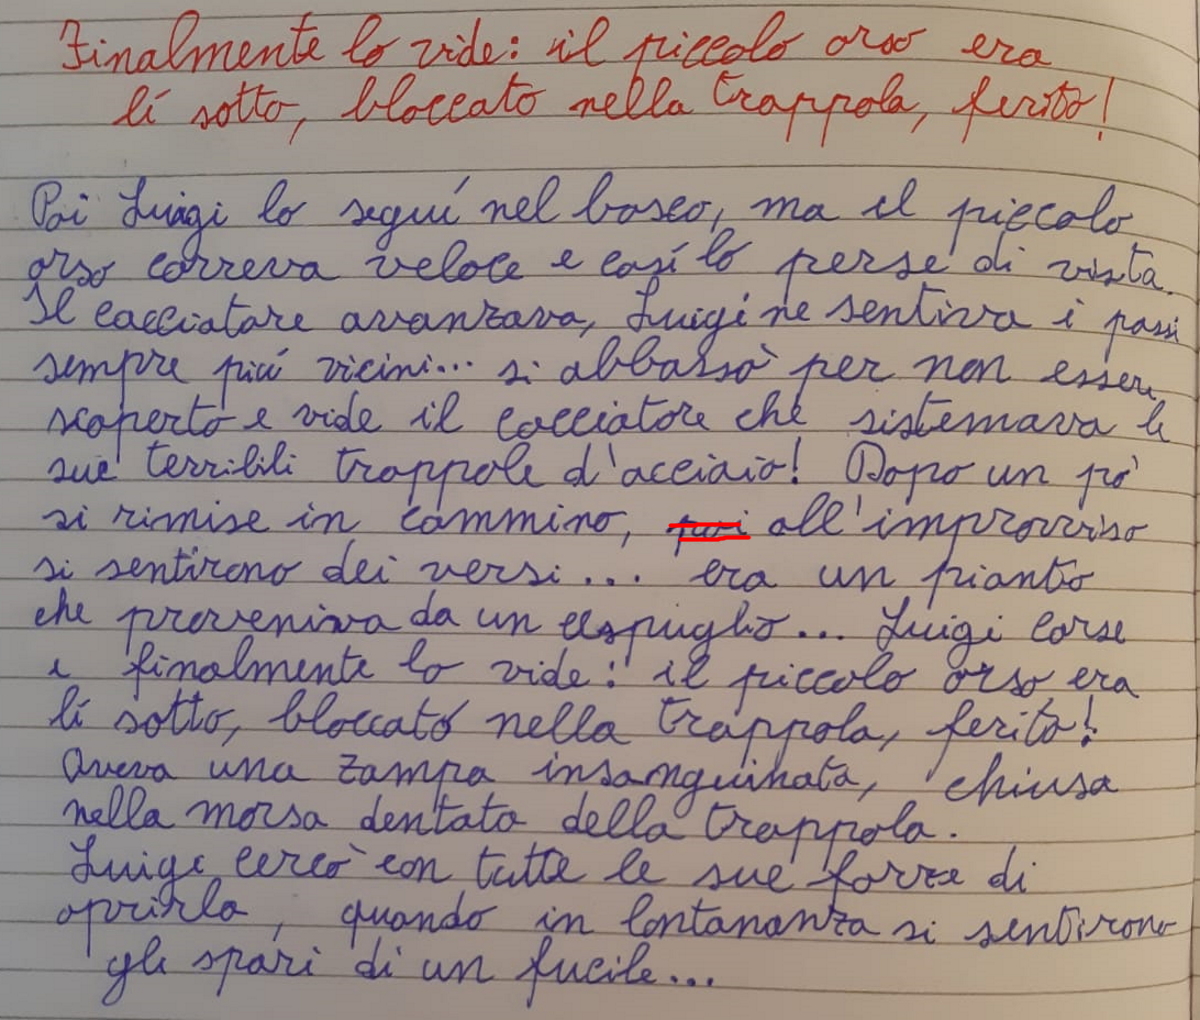 Finalmente lo vide: il piccolo orso era
lí sotto, bloccato nella trappola, ferito!
Poi Luigi lo seguí nel bosco, ma il piccolo
orso correva veloce e così lo perse di vista.
Il cacciatore avanzava, Luigi ne sentiva i passi
sempre piú vicini... si abbassò per non essere
scoperto e vide il cacciatore che sistemava le
sue terribili trappole d'acciaio! Dopo un pò
si rimise in cammino, all'improvviso
si sentirono dei versi... era un pianto
che proveniva da un cespuglio... Luigi corse
e finalmente lo vide: il piccolo orso era
lí sotto, bloccato nella trappola, ferito!
Aveva una zampa insanguinata, chiusa
nella morsa dentata della trappola.
Luigi cercò con tutte le sue forze di
aprirla, quando in lontananza si sentirono
gli spari di un fucile...